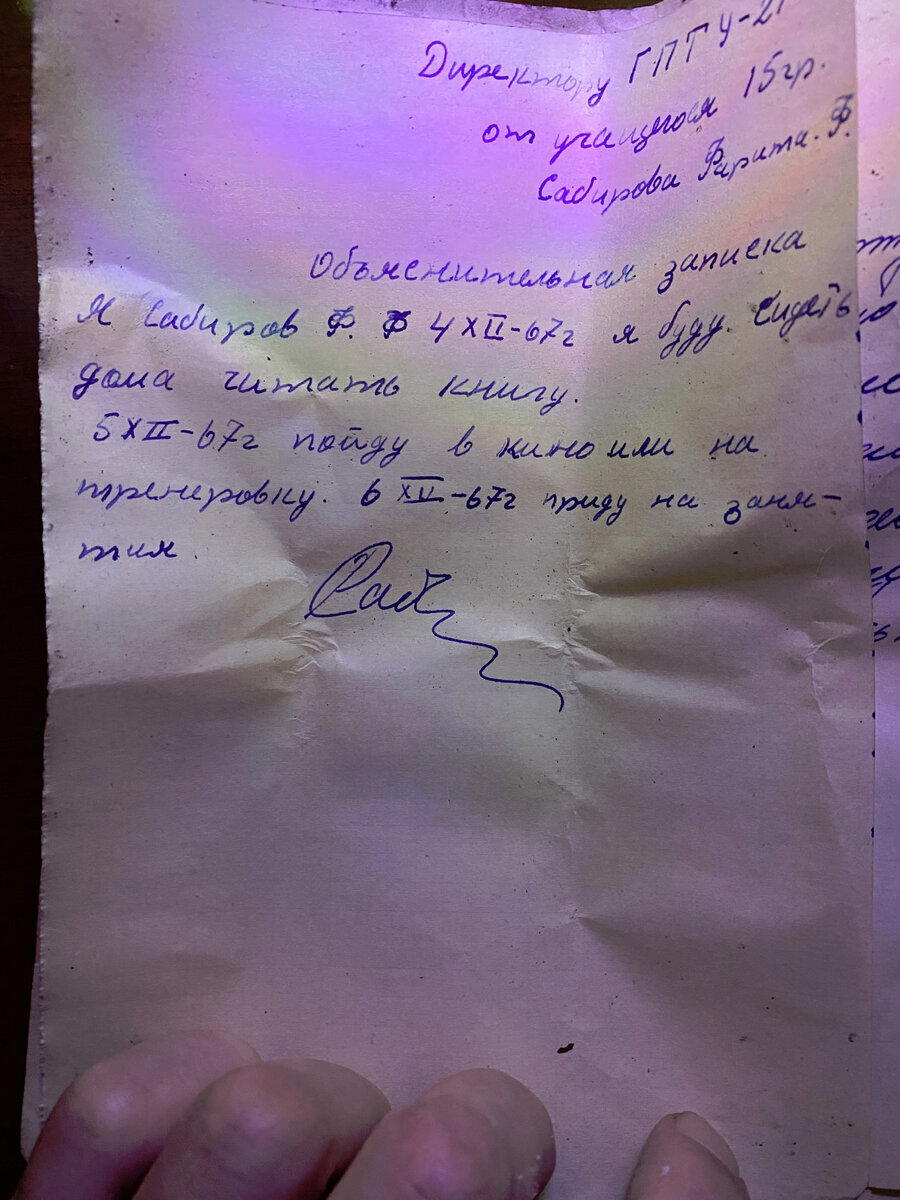 Директору ГПТУ-21
от учащегося 15гр.
Сабирова Фарита. Ф.
Объяснительная записка
Я Сабиров Ф. Ф 4 XII-67г я буду. Сидеть
дома читать книгу.
5 XII-67г пойду в кино или на
тренеровку. 6 XII-67г приду на заня-
тия.